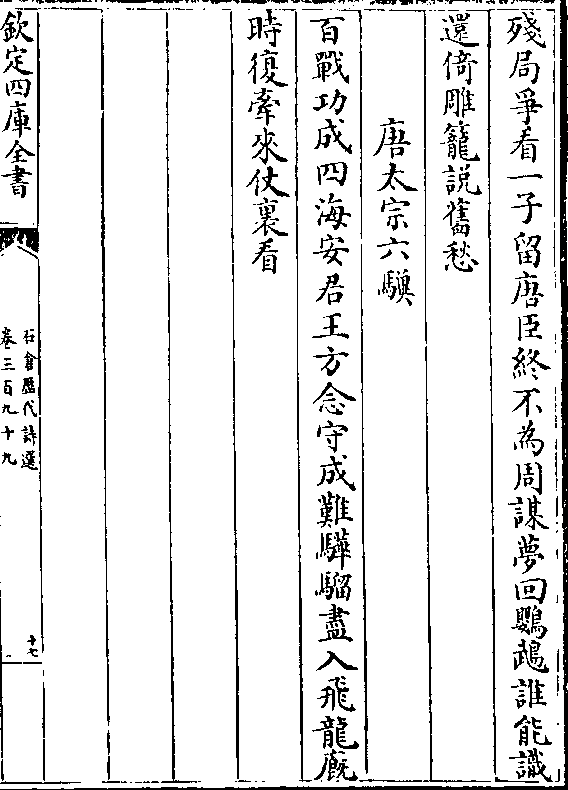 殘局爭看一子留唐臣終不為周謀夢回鸚鵡誰能識
還倚雕籠説舊愁
唐太宗六驥
百戰功成四海安君王方念守成難驊騮盡入飛龍廐
時復牽來仗裏看
欽定四庫全書
石倉歷代詩選
卷三百九十九
十七